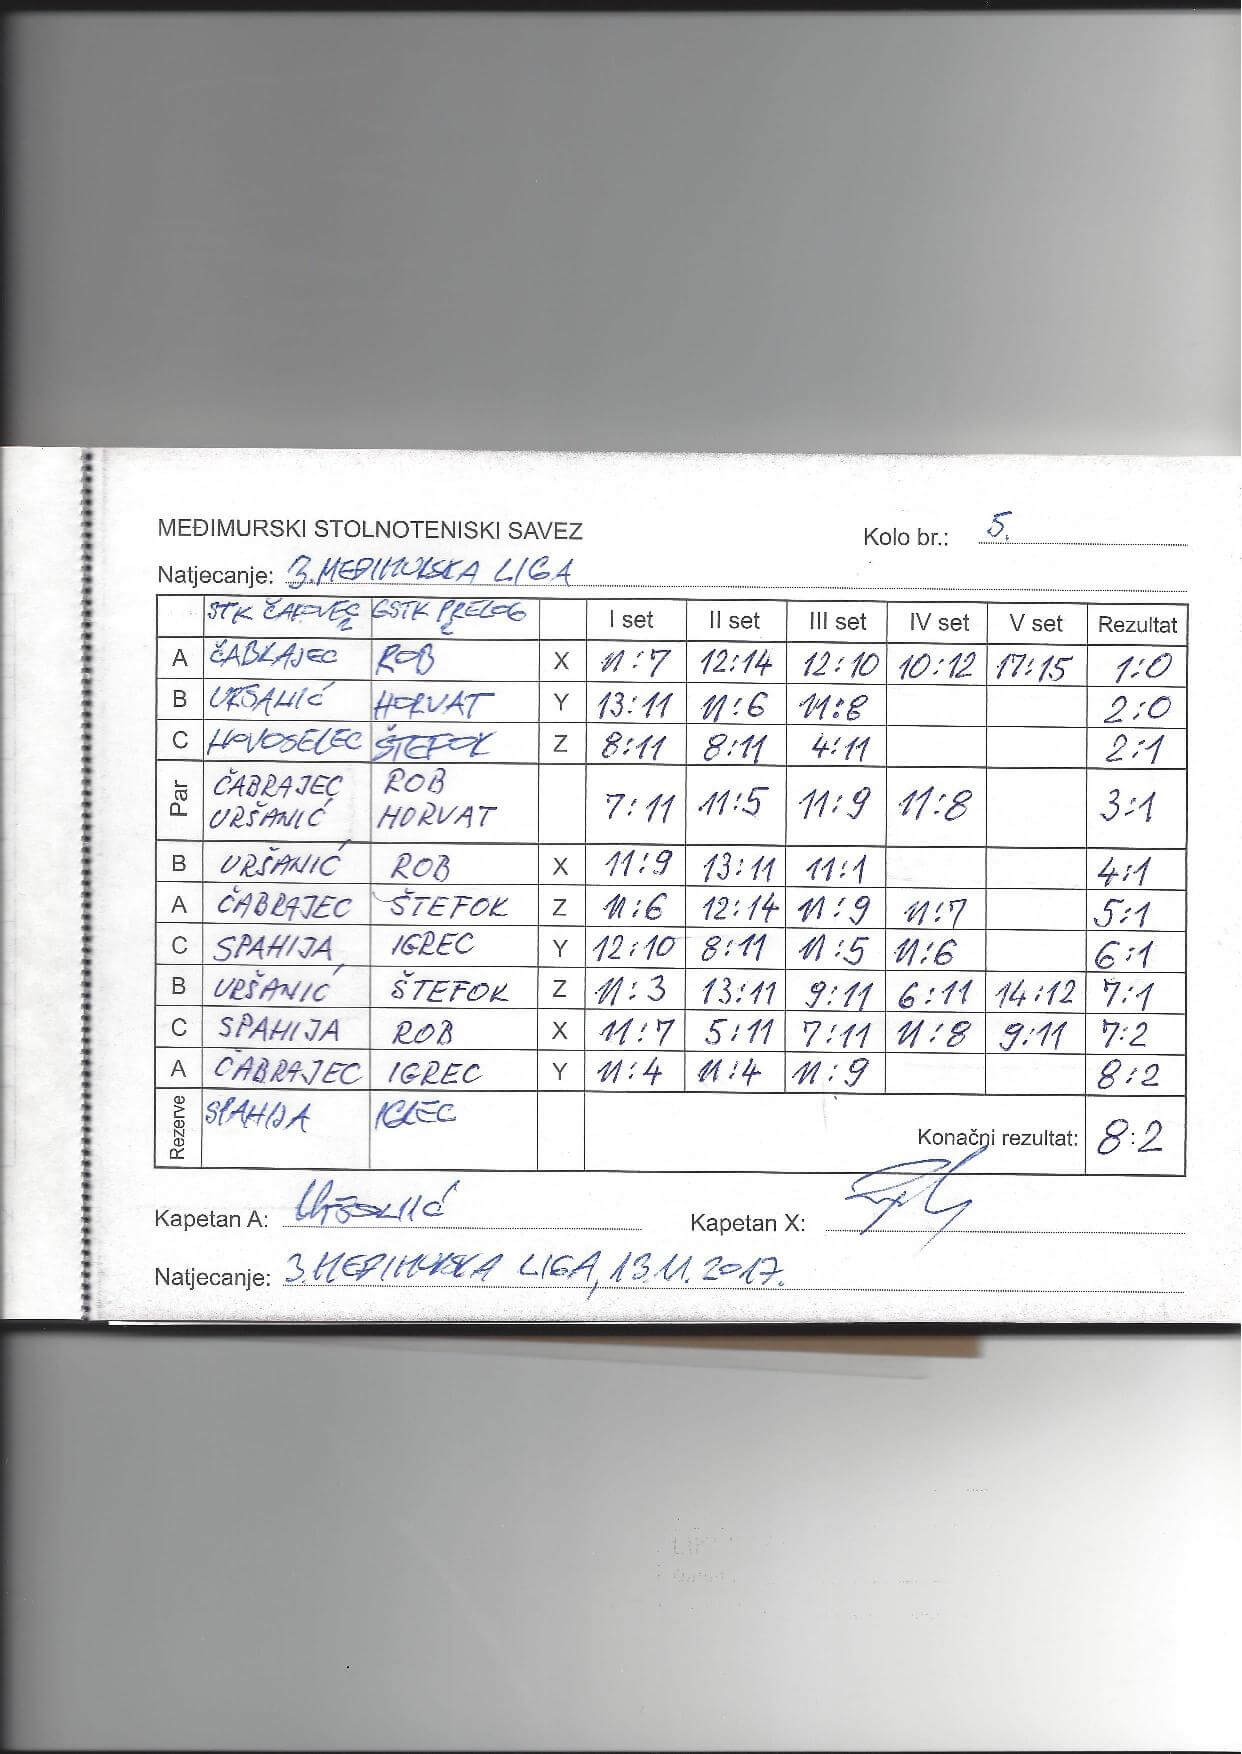 MEĐIMURSKI STOLNOTENISKI SAVEZ
Kolo br.: 5.
Natjecanje: 3. MEĐIMURSKA LIGA
STK ČAKOVEC 2 GSTK PRELOG 2 I set II set III set IV set V set Rezultat
A ČABRAJEC ROB X 11:7 12:14 12:10 10:12 17:15 1:0
B URŠANIĆ HORVAT Y 13:11 11:6 11:8 2:0
C NOVOSELEC ŠTEFOK Z 8:11 8:11 4:11 2:1
Par ČABRAJEC ROB 7:11 11:5 11:9 11:8 3:1
URŠANIĆ HORVAT
B URŠANIĆ ROB X 11:9 13:11 11:1 4:1
A ČABRAJEC ŠTEFOK Z 11:6 12:14 11:9 11:7 5:1
C SPAHIJA IGREC Y 12:10 8:11 11:5 11:6 6:1
B URŠANIĆ ŠTEFOK Z 11:3 13:11 9:11 6:11 14:12 7:1
C SPAHIJA ROB X 11:7 5:11 7:11 11:8 9:11 7:2
A ČABRAJEC IGREC Y 11:4 11:4 11:9 8:2
Rezerve SPAHIJA IGREC Konačni rezultat: 8:2
Kapetan A: Uršanić Kapetan X:
Natjecanje: 3. MEĐIMURSKA LIGA, 13.11.2017.